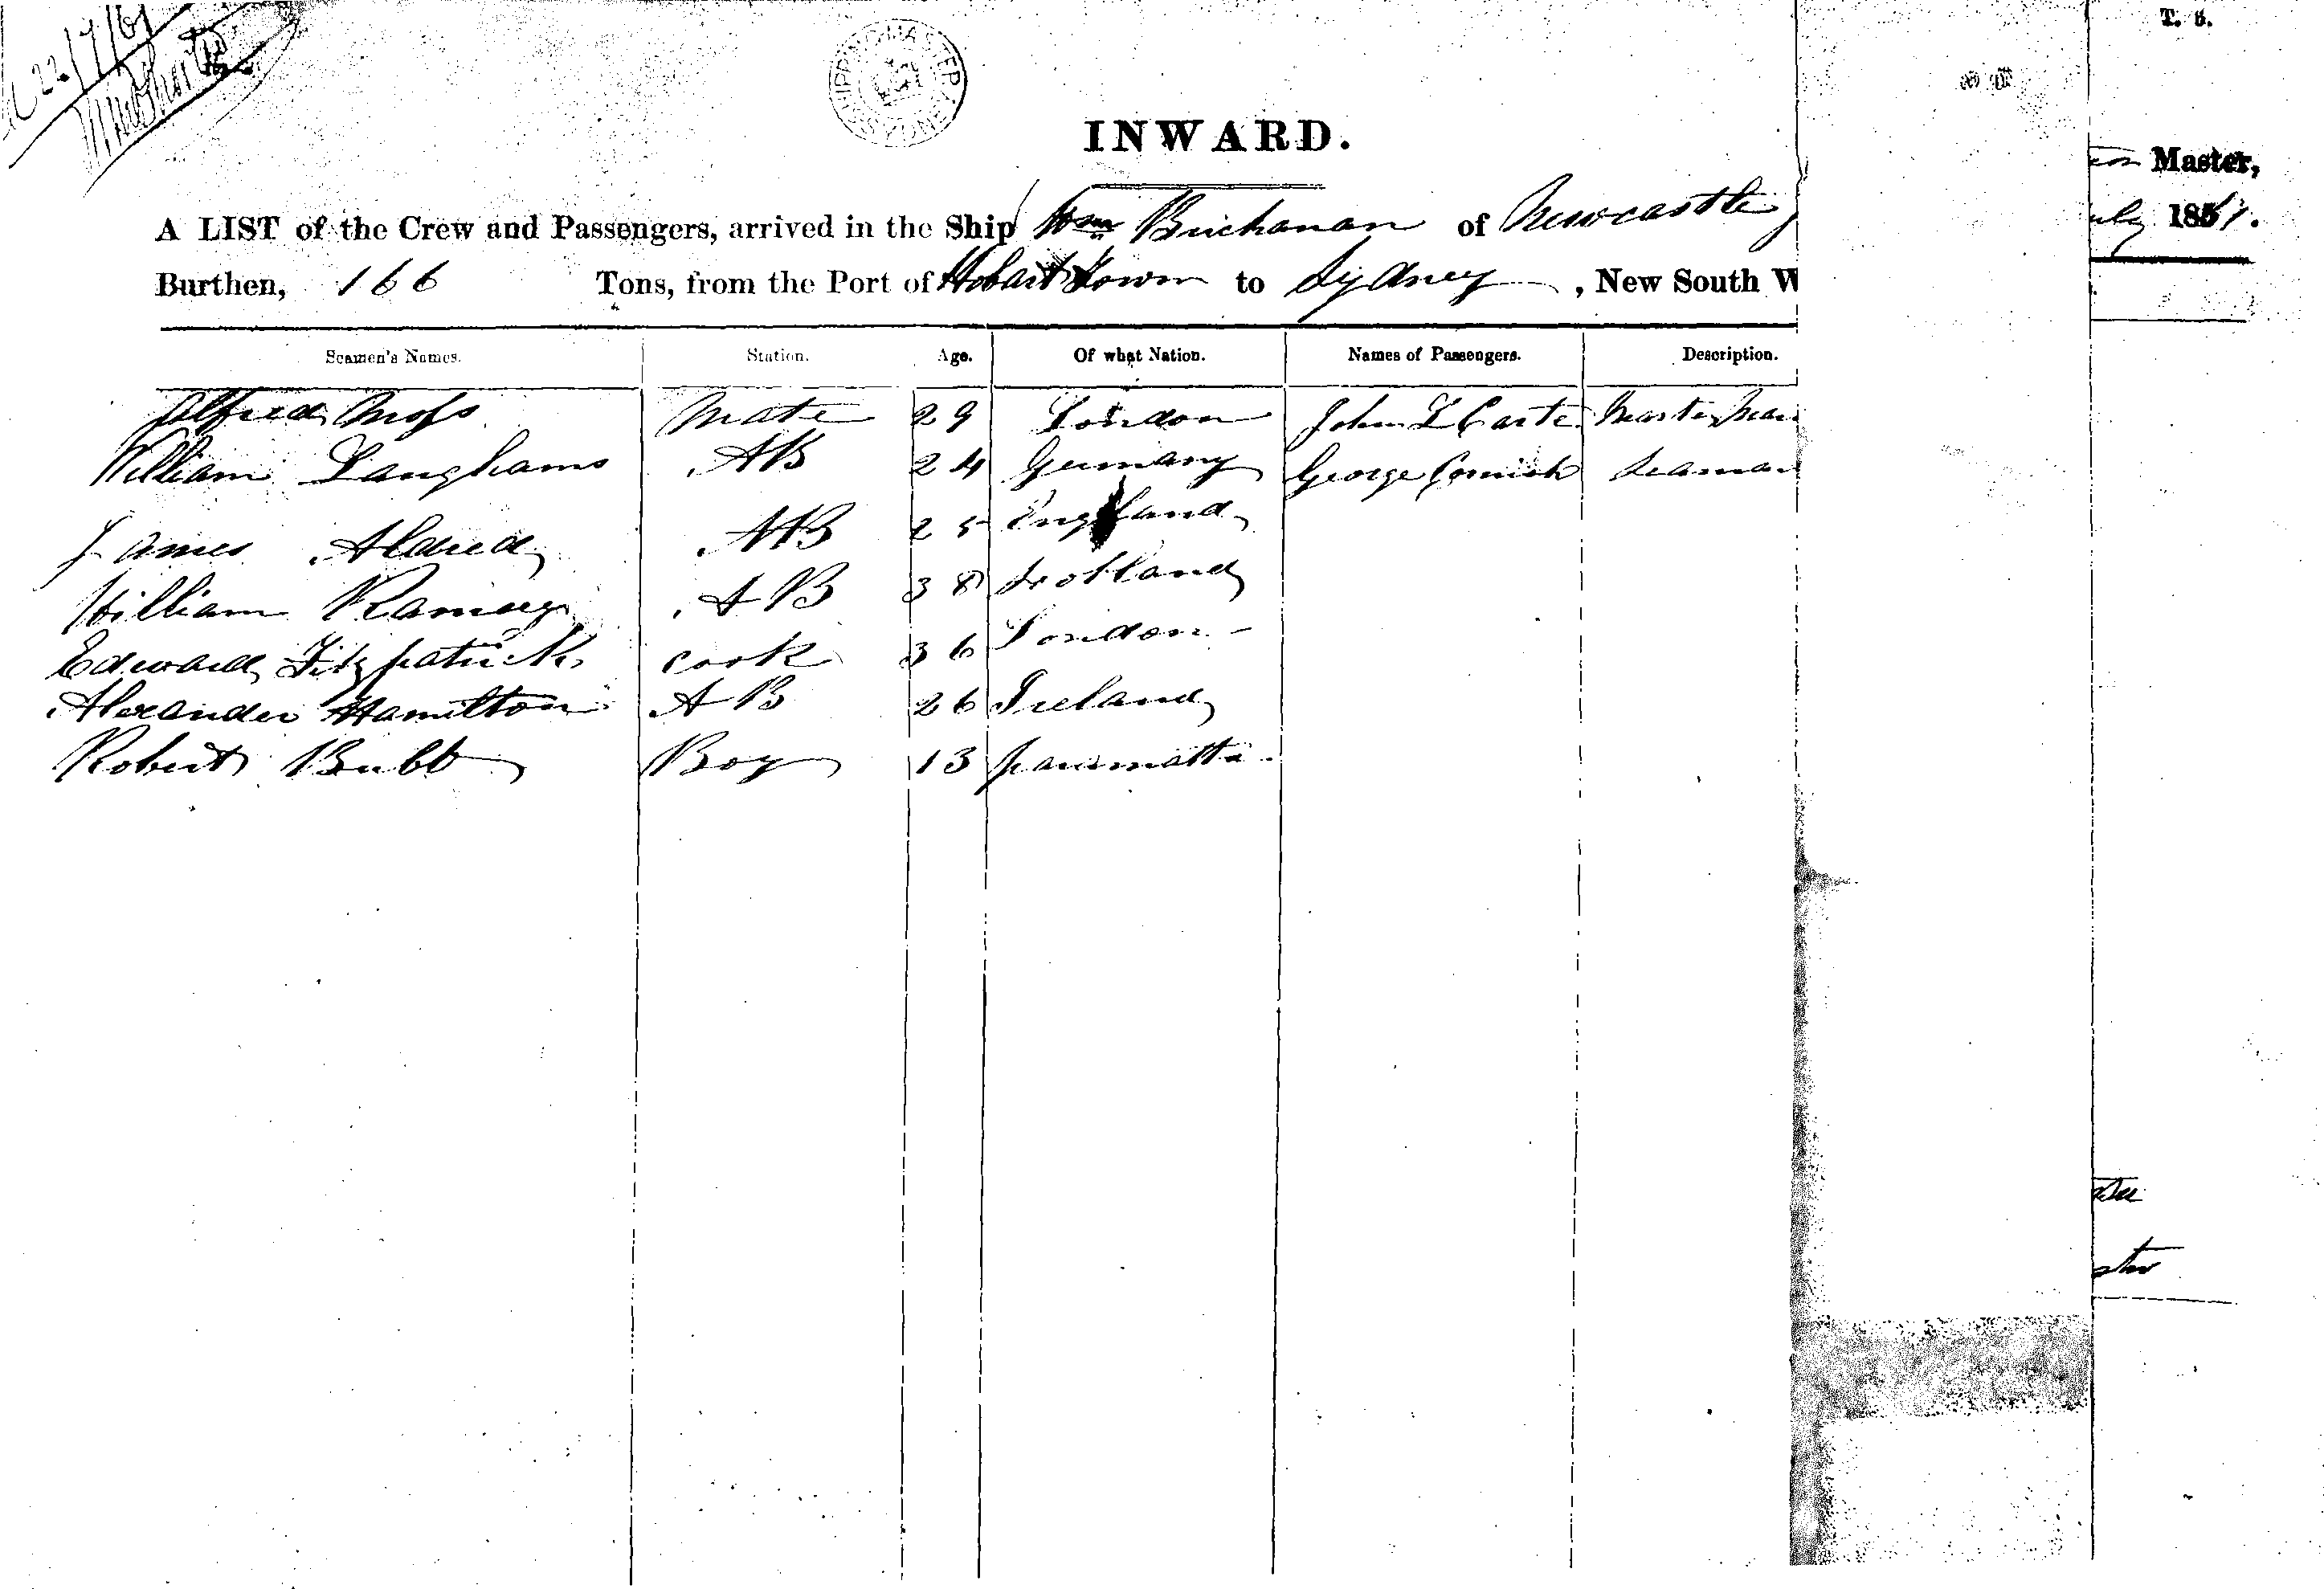 22/7/61
SHIPPING MASTER SYDNEY
T. S.
INWARD.
Master,
A LIST of the Crew and Passengers, arrived in the Ship Wm Buchanan of Newcastle
uly 1861.
Burthen, 166 Tons, from the Port of Hobart Town to Sydney, New South W
Seamen's Names. Station. Age. Of what Nation. Names of Passengers. Description.
Alfred Moss Mate 29 London John L Carte Master Mari
William Langhams AB 24 Germany George Cornish Seaman
James Aldred AB 25 England
William Ramage AB 38 Scotland
Edward Fitzpatrick cook 36 London
Alexander Hamilton AB 26 Ireland
Robert Bubb Boy 13 paramatta